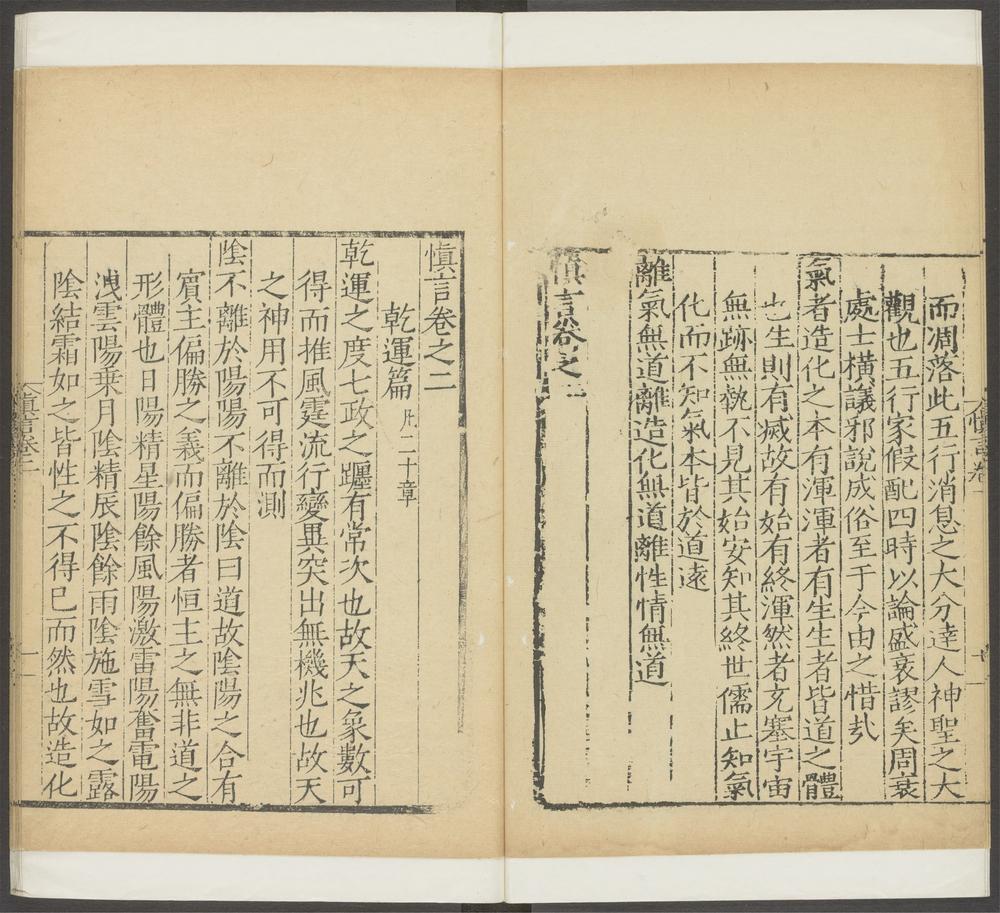 而凋落此五行消息之大分達人神聖之大
觀也五行家假配四時以論盛衰謬矣周衰
處士橫議邪說成俗至于今由之惜㢤
氣者造化之本有渾渾者有生生者皆道之體
也生則有滅故有始有終渾然者充塞宇宙
無跡無執不見其始安知其終世儒止知氣
化而不知氣本皆於道遠
離氣無道離造化無道離性情無道
慎言卷之一
慎言卷一
慎言卷之二
乾運篇 凡二十章
乾運之度七政之躔有常次也故天之象數可
得而推風霆流行變異突出無機兆也故天
之神用不可得而測
陰不離於陽陽不離於陰曰道故陰陽之合有
賓主偏勝之義而偏勝者恒主之無非道之
形體也日陽精星陽餘風陽激雷陽奮電陽
洩雲陽乗月陰精辰陰餘雨陰施雪如之露
陰結霜如之皆性之不得已而然也故造化
慎言卷二
一